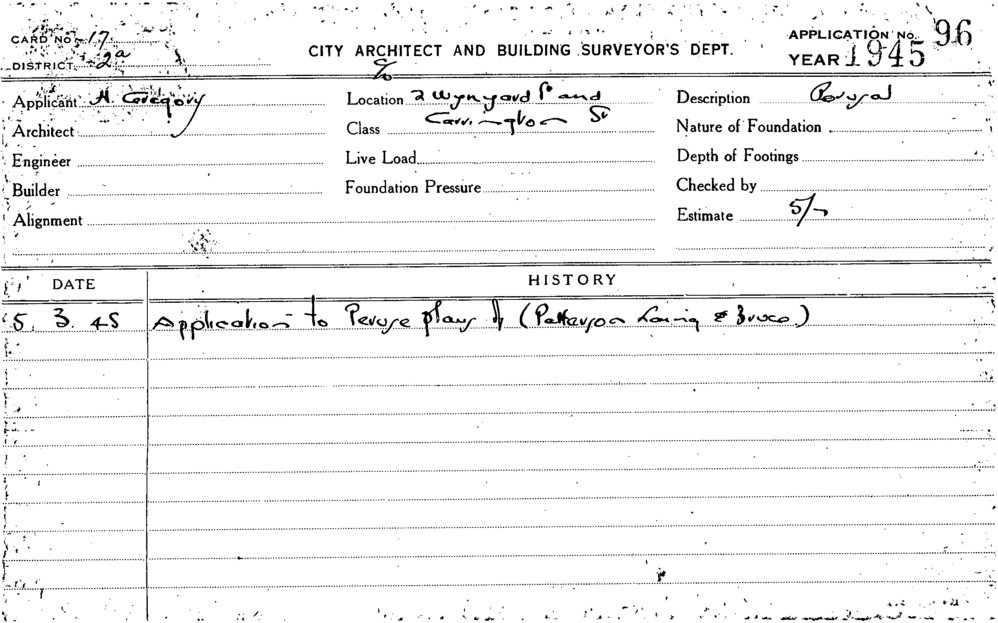 CARD No. 17
DISTRICT 2a
CITY ARCHITECT AND BUILDING SURVEYOR'S DEPT.
APPLICATION No. 96
YEAR 1945
Applicant H. Gregory
Architect
Engineer
Builder
Alignment
c/o
Location 2 Wynyard St and
Carrington St
Class
Live Load
Foundation Pressure
Description Perusal
Nature of Foundation
Depth of Footings
Checked by
Estimate 5/-
DATE HISTORY
5. 3. 45 Application to Peruse plans of (Patterson Laing & Bruce)